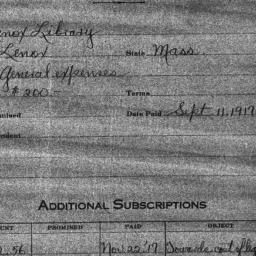 enox Library
Lenox State Mass.
General expenses
$200.- Terms
mised Date Paid Sept 11, 1917
ndent
ADDITIONAL SUBSCRIPTIONS
UNT PROMISED PAID OBJECT
.56 Nov 22 '17 Towards cost of